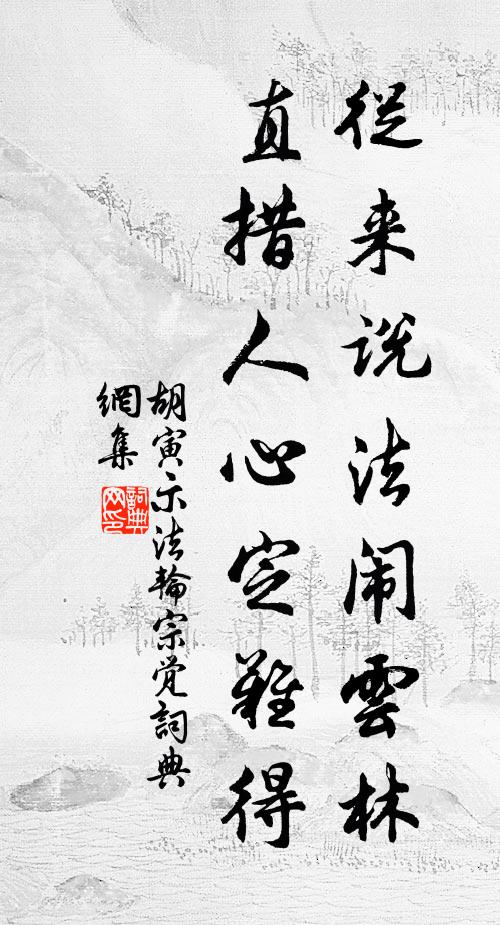 從来说法闹雲林
直措人心定難得
胡寅示法輪宗覚詞典
網集
詞典
网印